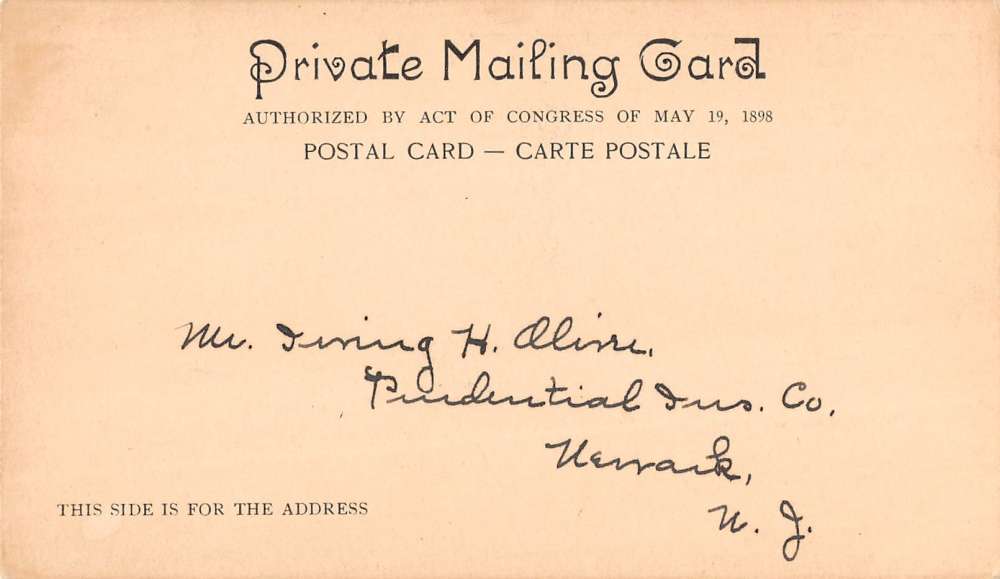 Private Mailing Card
AUTHORIZED BY ACT OF CONGRESS OF MAY 19, 1898
POSTAL CARD — CARTE POSTALE
Mr. Irving H.
Prudential Ins. Co.
Newark,
N. J.
THIS SIDE IS FOR THE ADDRESS